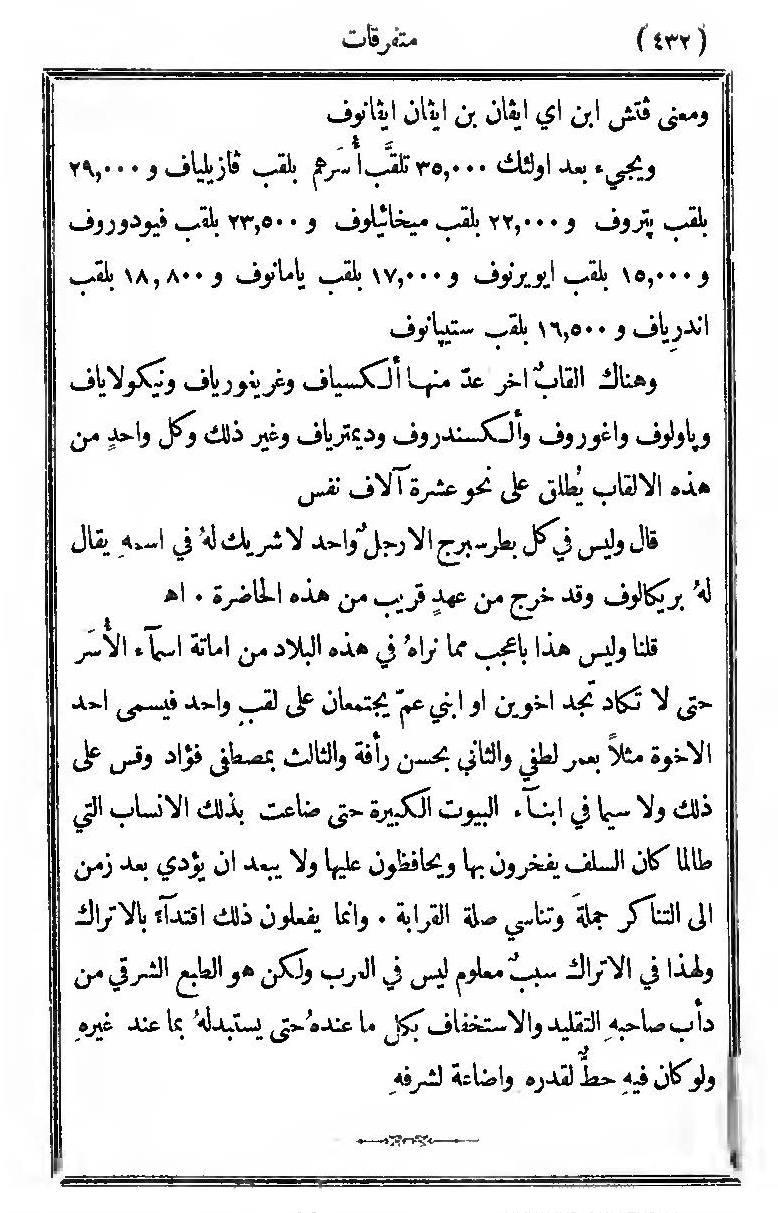 (٤٣٢) متفرقات
ومعنى ڤتش ابن اي ايڤان بن ايڤان ايڤانوف
ويجيء بعد اولئك ٣٥,٠٠٠ تلقَّب أُسَرهم بلقب ڤازيلياف و ٢٩,٠٠٠
بلقب پتروف و ٢٢,٠٠٠ بلقب ميخائيلوف و ٢٣,٥٠٠ بلقب فيودوروف
و ١٥,٠٠٠ بلقب ايويرنوف و ١٧,٠٠٠ بلقب يامانوف و ١٨,٨٠٠ بلقب
اندرياف و ١٦,٥٠٠ بلقب ستيپانوف
وهناك القابٌ اخر عدّ منها ألكسياف وغريغورياف ونيكولاياف
وپاولوف واغوروف وألكسندروف وديمترياف وغير ذلك وكل واحدٍ من
هذه الالقاب يُطلق على نحو عشرة آلاف نفس
قال وليس في كل بطرسبرج الا رجلٌ واحد لا شريك لهُ في اسمهِ يقال
لهُ بريكالوف وقد خرج من عهدٍ قريب من هذه الحاضرة ٠ اه
قلنا وليس هذا باعجب مما نراهُ في هذه البلاد من اماتة اسمآء الأُسَر
حتى لا تكاد تجد اخوين او ابني عمّ يجتمعان على لقبٍ واحد فيسمى احد
الاخوة مثلاً بعمر لطفي والثاني بحسن رأفة والثالث بمصطفى فؤاد وقس على
ذلك ولا سيما في ابنآء البيوت الكبيرة حتى ضاعت بذلك الانساب التي
طالما كان السلف يفخرون بها ويحافظون عليها ولا يبعد ان يؤدي بعد زمن
الى التناكر جملةً وتناسي صلة القرابة ٠ وانما يفعلون ذلك اقتدآءً بالاتراك
ولهذا في الاتراك سببٌ معلوم ليس في العرب ولكن هو الطبع الشرقي من
دأب صاحبهِ التقليد والاستخفاف بكل ما عندهُ حتى يستبدلهُ بما عند غيرهِ
ولو كان فيهِ حطٌّ لقدره واضاعة لشرفهِ